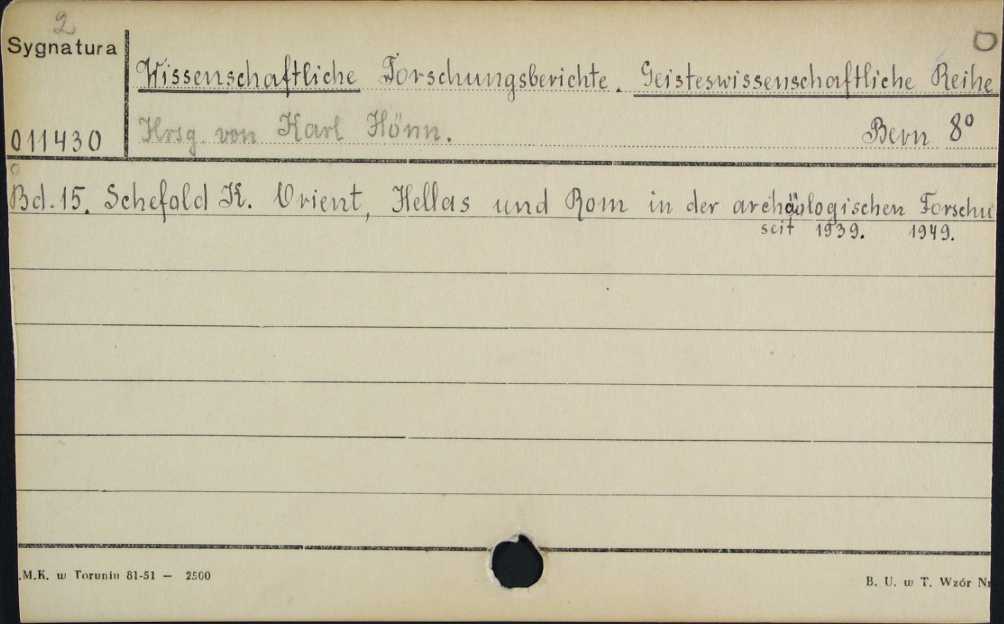 2
Sygnatura
Wissenschaftliche Forschungsberichte. Geisteswissenschaftliche Reihe
011430 Hrsg. von Karl Hönn. Bern 8°
Bd. 15. Schefold K. Orient, Hellas und Rom in der archäologischen Forschu
seit 1939. 1949.
.M.K. w Toruniu 81-51 — 2500
B. U. w T. Wzór Nr